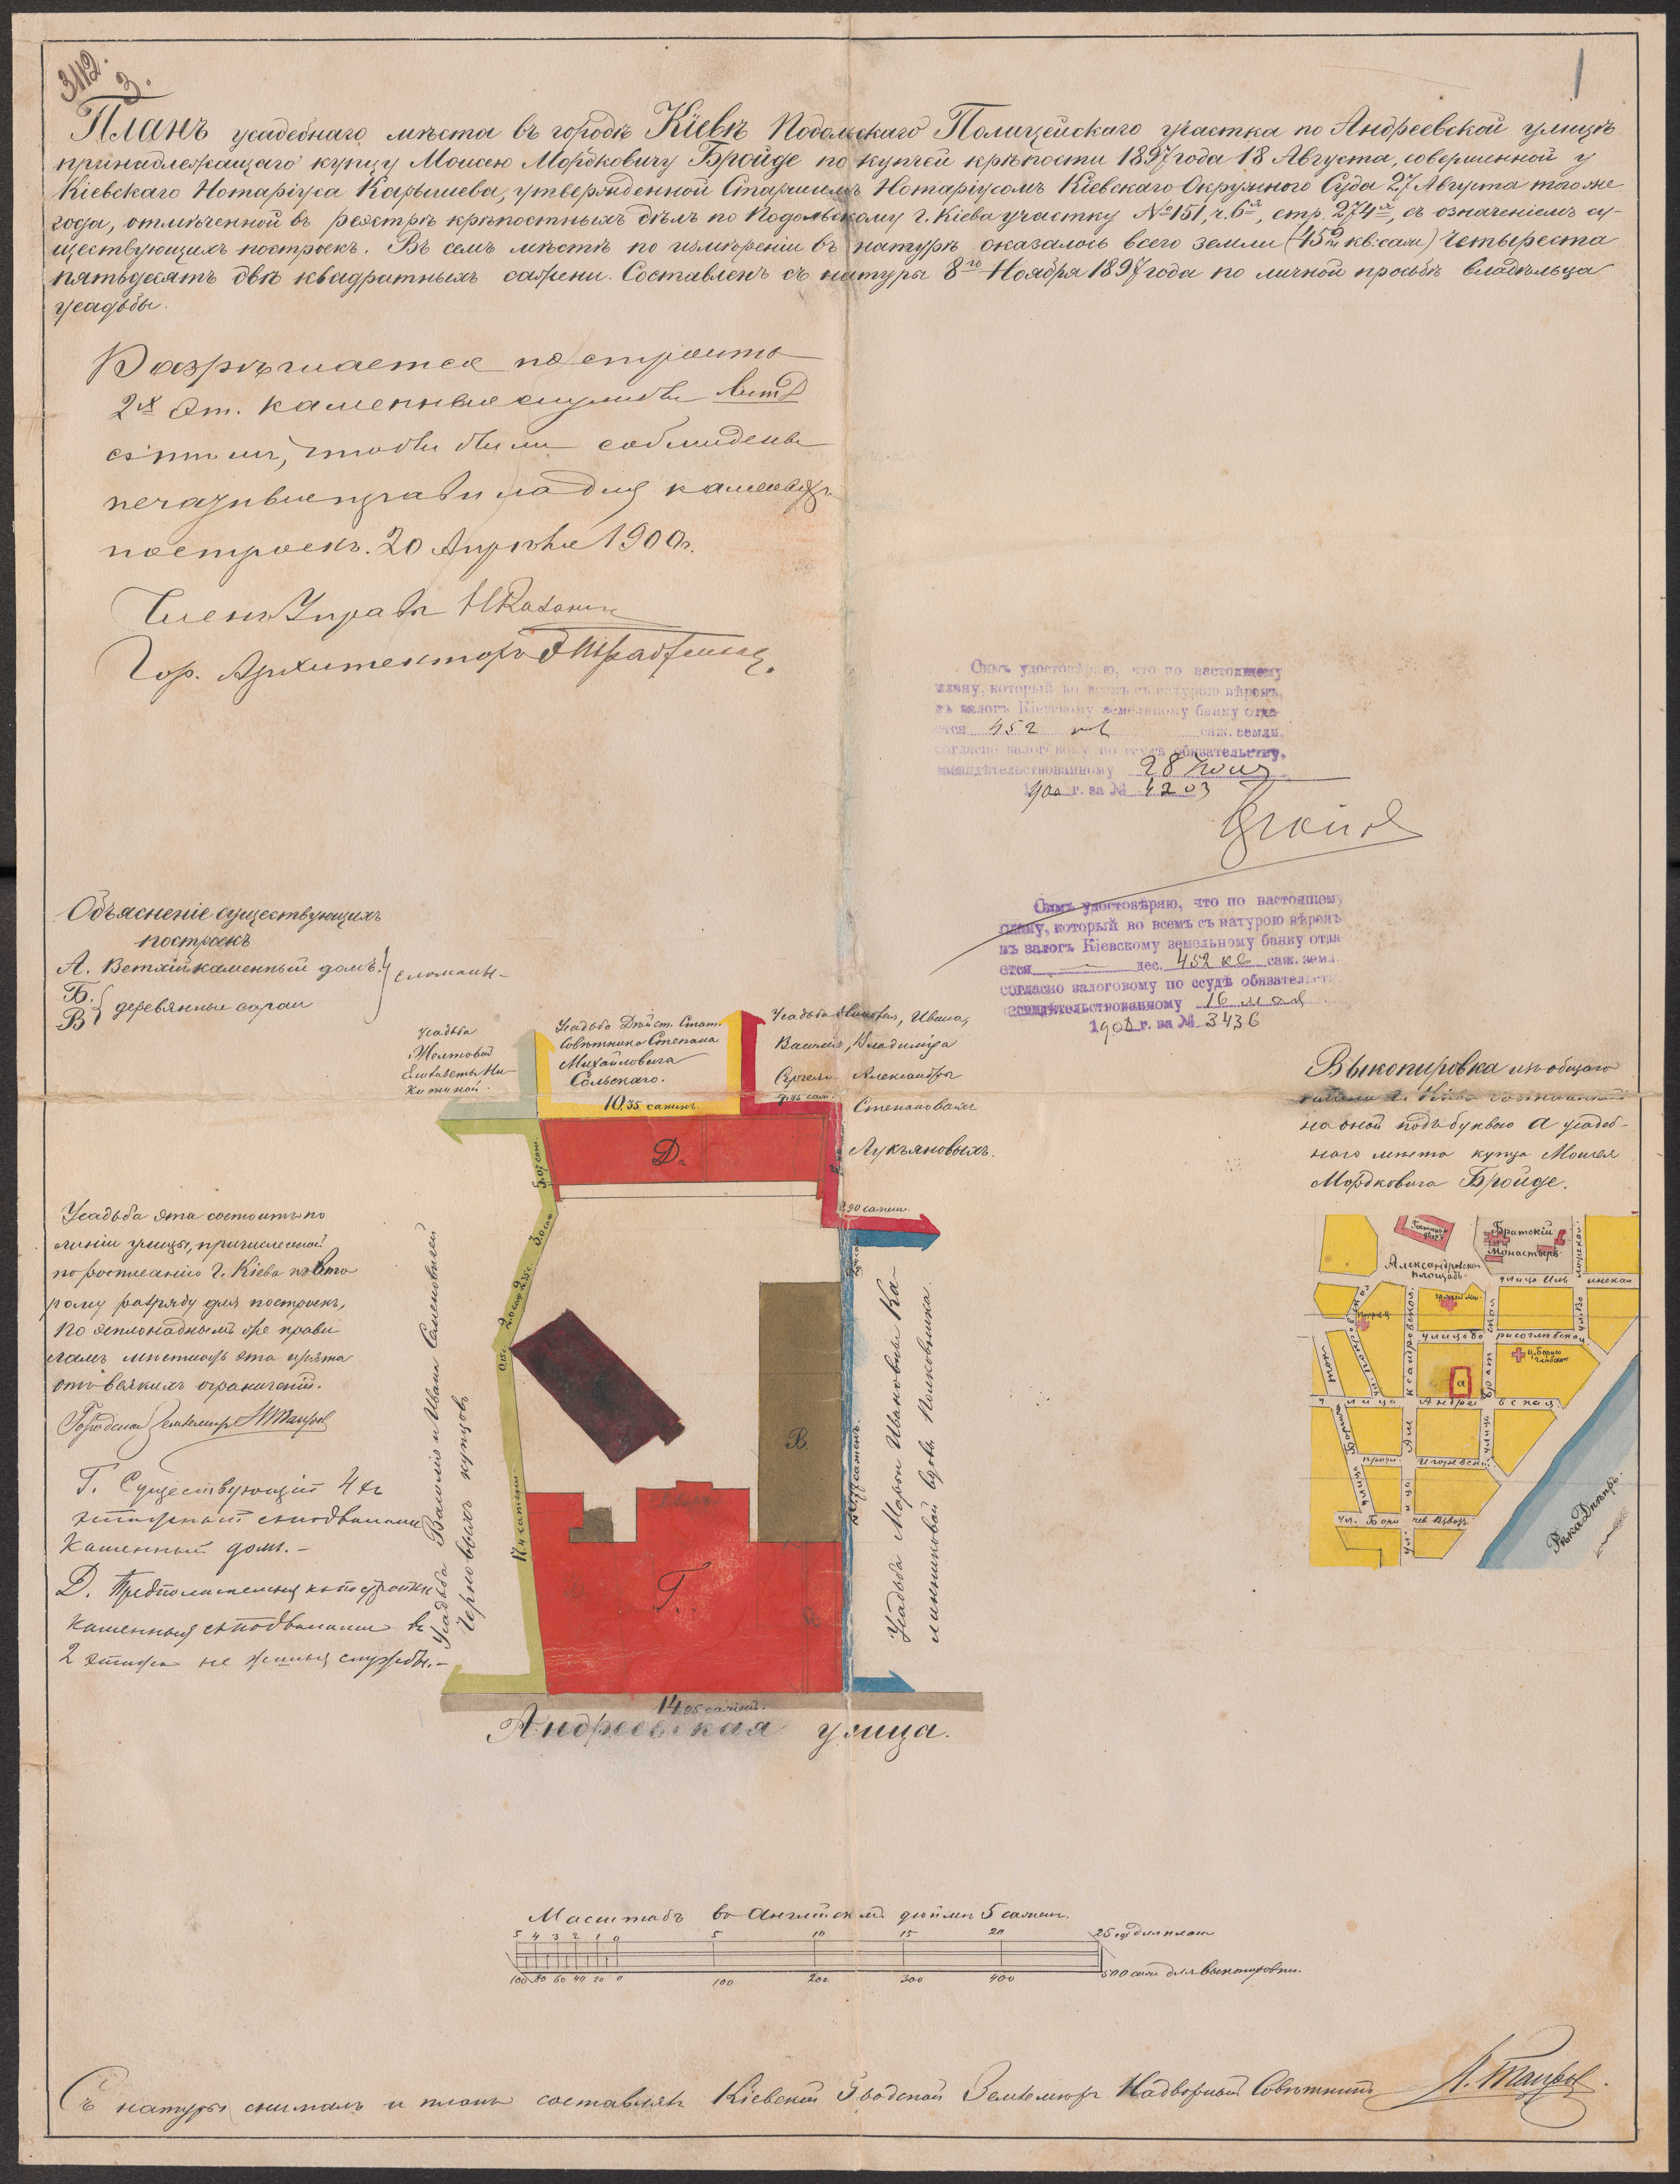 3112.
3.
1
Планъ усадебнаго мѣста въ городѣ Кіевѣ Подольскаго Полицейскаго участка по Андреевской улицѣ
принадлежащаго купцу Моисею Мордковичу Бройде по купчей крѣпости 1897 года 18 Августа, совершенной у
Кіевскаго Нотаріуса Карышева, утвержденной Старшимъ Нотаріусомъ Кіевскаго Окружного Суда 27 Августа того же
года, отмѣченной въ реэстрѣ крѣпостныхъ дѣлъ по Подольскому г. Кіева участку № 151, ч. 6я, стр. 274я, съ означеніемъ су-
ществующихъ построекъ. Въ семъ мѣстѣ по измѣреніи въ натурѣ оказалось всего земли (452 кв. саж) Четыреста
пятьдесятъ двѣ квадратныхъ сажени. Составленъ съ натуры 8го Ноября 1897 года по личной просьбѣ владѣльца
усадьбы.
Разрѣшается построить
2х эт. каменныя службы лит Д
съ тѣмъ, чтобы были соблюдены
правила для каменныхъ
построекъ. 20 Апрѣля 1900 г.
Членъ Управы
Гор. Архитекторъ
Симъ удостовѣряю, что по настоящему
плану, который во всемъ съ натурою вѣренъ,
въ залогъ Кіевскому земельному банку отда-
ется 452 кв саж. земли,
согласно залоговому по ссудѣ обязательству,
засвидѣтельствованному 28
1900 г. за № 4203
Симъ удостовѣряю, что по настоящему
плану, который во всемъ съ натурою вѣренъ
въ залогъ Кіевскому земельному банку отда
ется — дес. 452 кв саж. земл
согласно залоговому по ссудѣ обязательст
засвидѣтельствованному 16 мая
190 г. за № 3436
Объясненіе существующихъ
построекъ
А. Ветхій каменный домъ.
Б.
В деревянные сараи
сломаны –
Усадьба
Желтовой
Елизаветы Ни-
китиной.
Усадьба Дѣйст. Стат.
Совѣтника Степана
Михайловича
Сольскаго.
10.35 сажень
Усадьба Ивана,
Василія, Владиміра
Сергея Александры
Степановыхъ
Лукьяновыхъ.
4.85 саж.
Д.
5.07 саж.
3.0 саж
2.90 сажен.
2.0 саж
2.35 с.
0.15 с.
В.
17.4 сажени.
Г.
14.95 сажень.
Андреевская улица.
Усадьба Василія и Ивана Семеновичей
Черновыхъ купцовъ
Усадьба Марѳы Ивановны Ка-
линниковой вдовы Полковника.
Усадьба эта состоитъ по
линіи улицы, причисленной
по росписанію г. Кіева ко Вто
рому разряду для построекъ,
по эспланаднымъ же прави
ламъ мѣстность эта изъята
отъ всякихъ ограниченій.
Городской Землемѣръ
Г. Существующій 4хъ
этажный съ подвалами
каменный домъ. –
Д. Предполагаемыя къ постройкѣ
каменныя съ подвалами въ
2 этажа не жилыя службы. –
Выкопировка изъ общаго
плана г. Кіева
на оной подъ буквою а усадеб-
наго мѣста купца Моисея
Мордковича Бройде.
Гостиный
дворъ
Братскій
Монастырь
Александровская
площадь.
улица Иль инская
улица бо рисоглѣбская
ц. Борисо
глѣбская
а
улица Андре евская
Игоревская
ул. Бори чев Взвозъ
Рѣка Днѣпръ.
Масштабъ въ Англійскомъ дюймѣ 5 сажен.
5 4 3 2 1 0 5 10 15 20 25 саж для плана
100 80 60 40 20 0 100 200 300 400 500 саж для выкопировки.
Съ натуры снималъ и планъ составлялъ Кіевскій Городской Землемѣръ Надворный Совѣтникъ